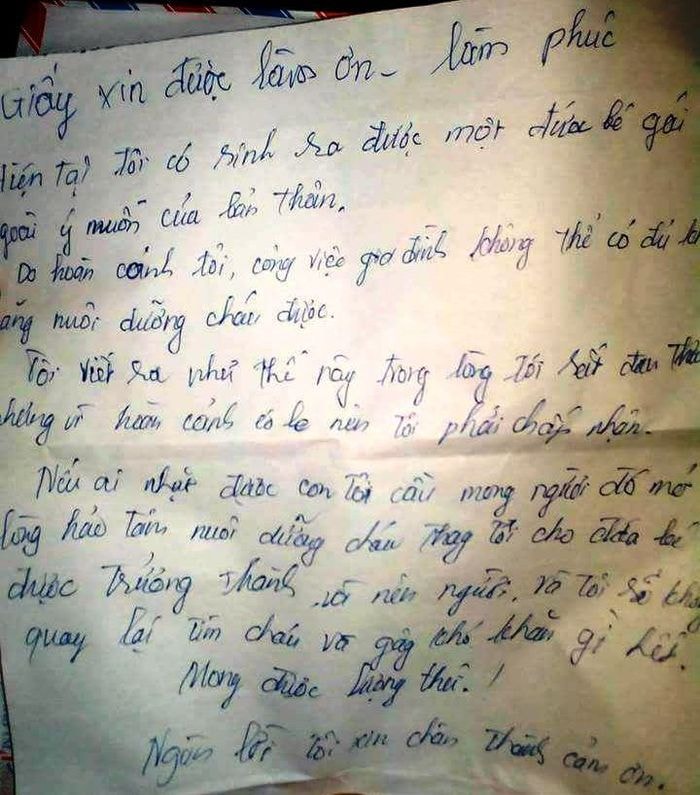 Giấy xin được làm ơn - làm phúc
Hiện tại tôi có sinh ra được một đứa bé gái
goài ý muốn của bản thân.
Do hoàn cảnh tôi, công việc gia đình không thể có đủ kh
ăng nuôi dưỡng cháu được.
Tôi viết ra như thế này trong lòng tôi rất đau thươ
hưng vì hoàn cảnh éo le nên tôi phải chấp nhận.
Nếu ai nhặt được con tôi cầu mong người đó mở
lòng hảo tâm nuôi dưỡng cháu thay tôi cho đứa bé
được trưởng thành và nên người, và tôi sẽ khô
quay lại tìm cháu và gây khó khăn gì hết.
Mong được lượng thứ!
Ngàn lời tôi xin chân thành cảm ơn.